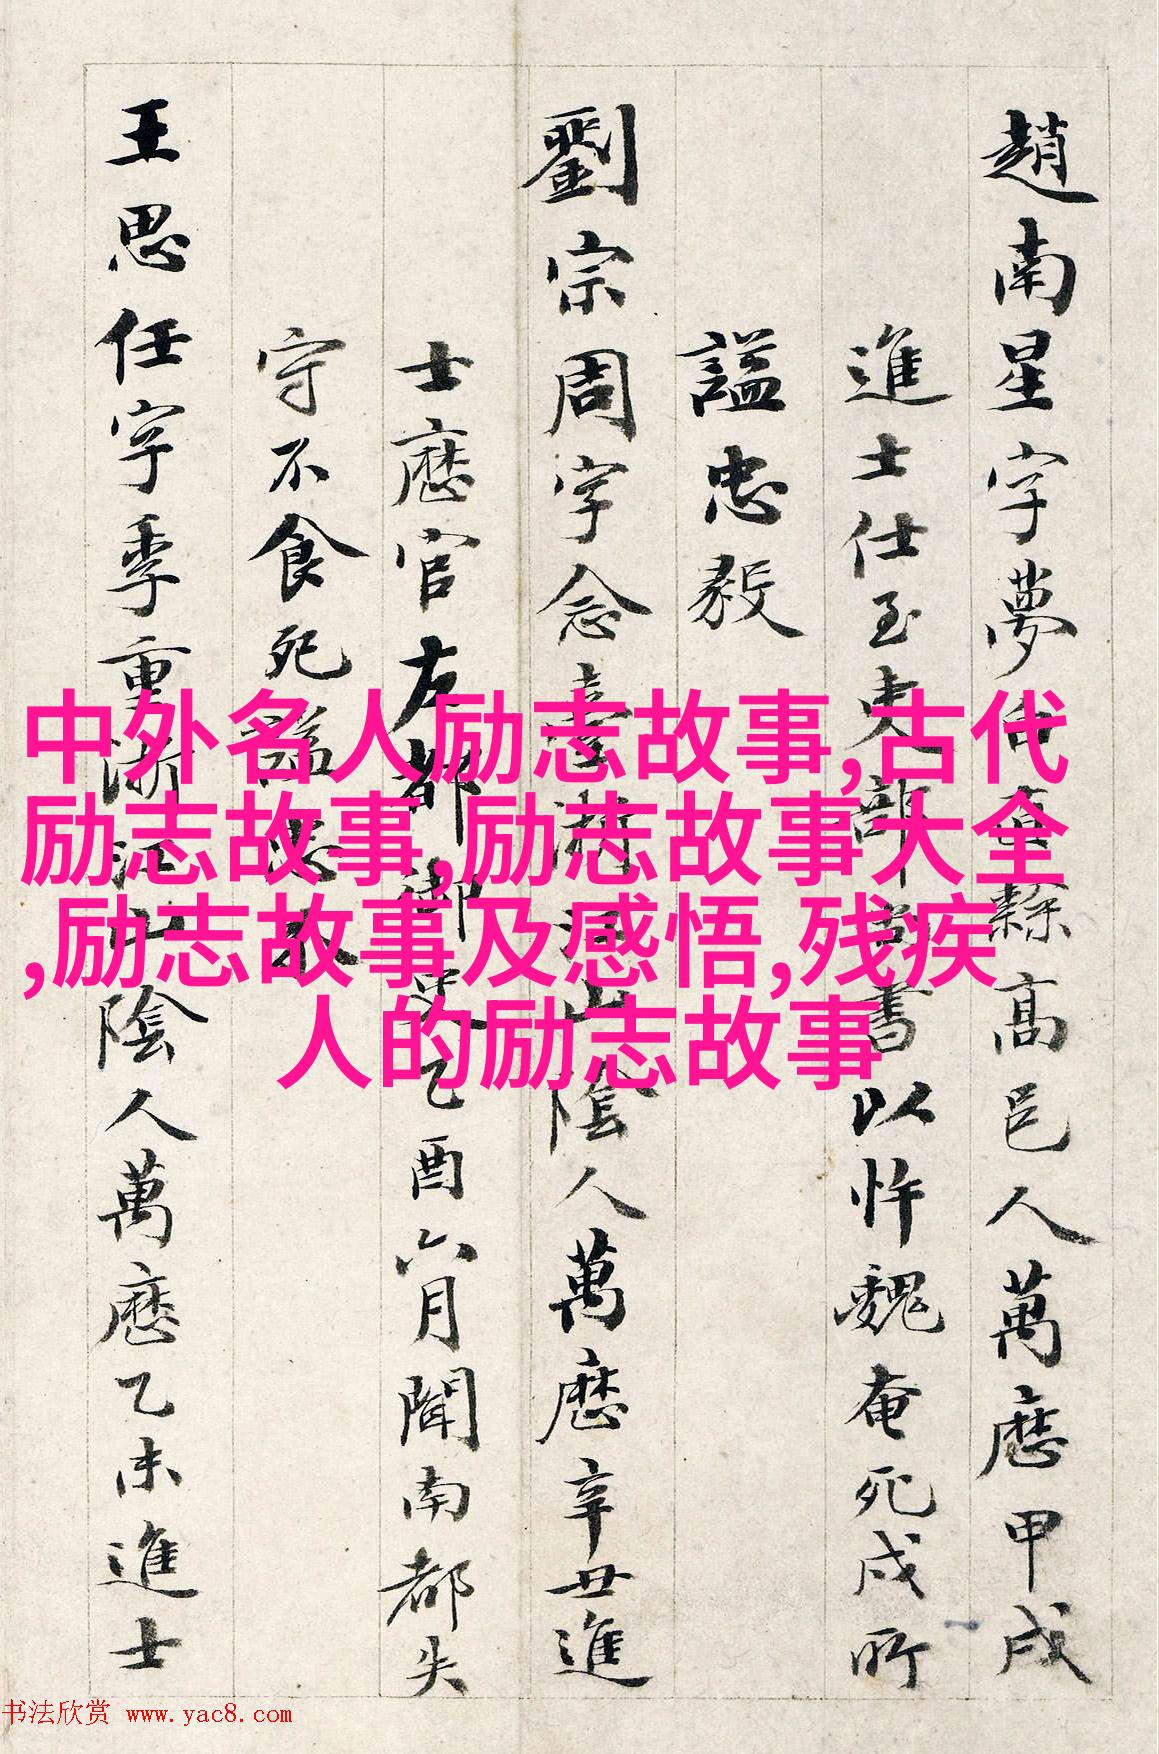 趙南星字夢白真隸高邑人萬曆甲戌
進士仕至吏部尚書以忤魏奄死戍所
諡忠毅
劉宗周字念臺浙江山陰人萬曆辛丑進
士歷官左都御史乙酉六月聞南都失
守不食死諡忠
王思任字季重浙江山陰人萬曆乙未進士
中外名人励志故事,古代
励志故事,励志故事大全
,励志故事及感悟,残疾
人的励志故事
书法欣赏 www.yac8.com